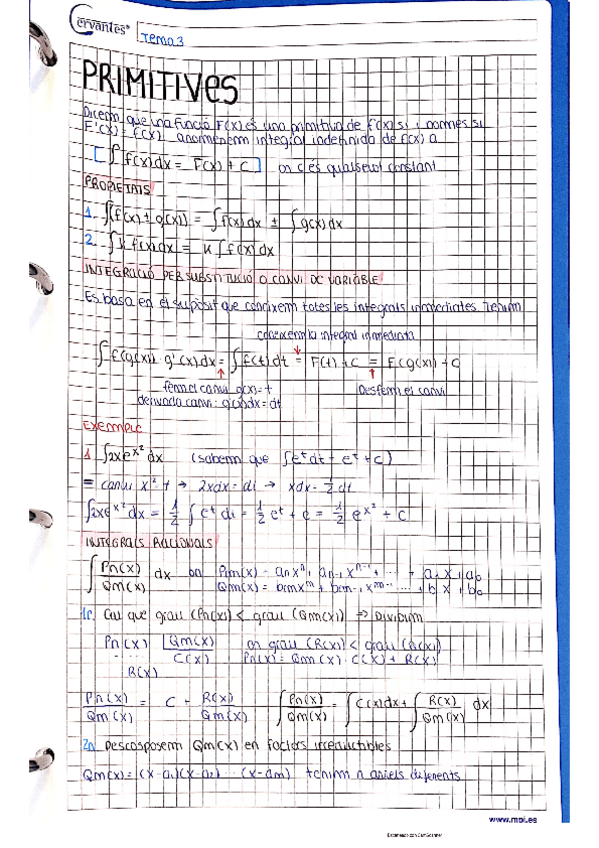 Cervantes®
Tema 3
PRIMITIVES
Diem que una funció F(x) és una primitiva de f(x) si i només si
F'(x) = f(x). anomenem integral indefinida de f(x) a
[∫ f(x)dx = F(x) + C] on c és qualsevol constant
PROPIETATS
1. ∫(f(x) ± g(x)) = ∫f(x)dx ± ∫g(x)dx
2. ∫k f(x)dx = k ∫f(x)dx
INTEGRACIÓ PER SUBSTITUCIÓ O CANVI DE VARIABLE
Es basa en el supòsit que coneixem totes les integrals inmediates. Tenim
coneixem la integral inmediata
∫f(g(x)) · g'(x)dx = ∫f(t)dt = F(t) + C = F(g(x)) + C
fem el canvi g(x) = t
Desfem el canvi
derivada canvi: g'(x)dx = dt
EXEMPLE
1 ∫2xe^x² dx (sabem que ∫e^t dt = e^t + C)
= canvi x² = t → 2xdx = dt → xdx = 1/2 dt
∫2xe^x² dx = 1/2 ∫e^t dt = 1/2 e^t + c = 1/2 e^x² + C
INTEGRALS RACIONALS
∫ Pn(x)/Qm(x) dx on Pn(x) = anx^n + an-1x^n-1 + ... + a1x + a0
Qm(x) = bmx^m + bm-1x^m-1 ... + b1x + b0
1r. Cal que grau (Pn(x)) < grau (Qm(x)) ⇒ DIVIDIM
Pn(x) | Qm(x) on grau (R(x)) < grau (Q(x))
... C(x) Pn(x) = Qm(x) · C(x) + R(x)
R(x)
Pn(x)/Qm(x) = C + R(x)/Qm(x) ∫Pn(x)/Qm(x) = ∫C(x)dx + ∫R(x)/Qm(x) dx
2n Descomposem Qm(x) en factors irreductibles
Qm(x) = (x-a1)(x-a2) ... (x-am) tenim n arrels diferents
www.mpi.es
Escaneado con CamScanner